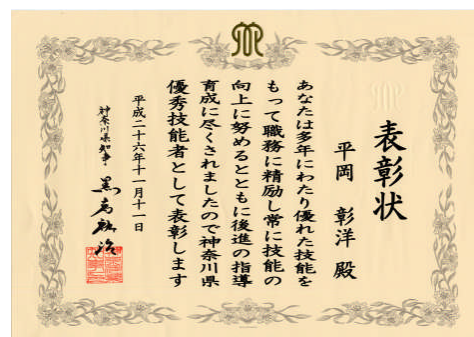 表彰状
平岡 彰洋 殿
あなたは多年にわたり優れた技能を
もって職務に精励し常に技能の
向上に努めるとともに後進の指導
育成に尽くされましたので神奈川県
優秀技能者として表彰します
平成二十六年十一月十一日
神奈川県知事 黒岩祐治